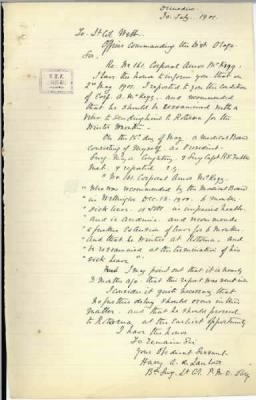 Dunedin
30. July. 1901.
To Lt Col Webb
Officer Commanding the Dist Otago
Sir
Re No 161 Corporal Amos McKegg
I have the honor to inform you that on
2nd May 1901. I reported to you the condition
of Corp. A. McKegg. and recommended
that he should be reexamined with a
view to sending him to Rotorua for the
Winter Months —
On the 15th day of May, a medical Board
consisting of Myself as President
Surg. Major and Surg Capt
that & reported
" No. 161. Corporal Amos McKegg
" who was recommended by the Medical Board
" in Wellington Dec. 13. 1900. 6 months
" sick leave is still in impaired health
" and is anaemic and recommends
" a further extension of leave for 6 months.
" and that he winters at Rotorua. and
" to be reexamined at the termination of his
" sick leave "
I may point out that it is nearly
3 months ago that this report was sent in
I consider it quite necessary that
no further delay should occur in this
matter. and that he should proceed
to Rotorua at the earliest opportunity
I have the honor
To remain Sir
Your Obedient Servant
Harry A. de Lautour
Bde Surg. Lt Col. P. M. O. Otago